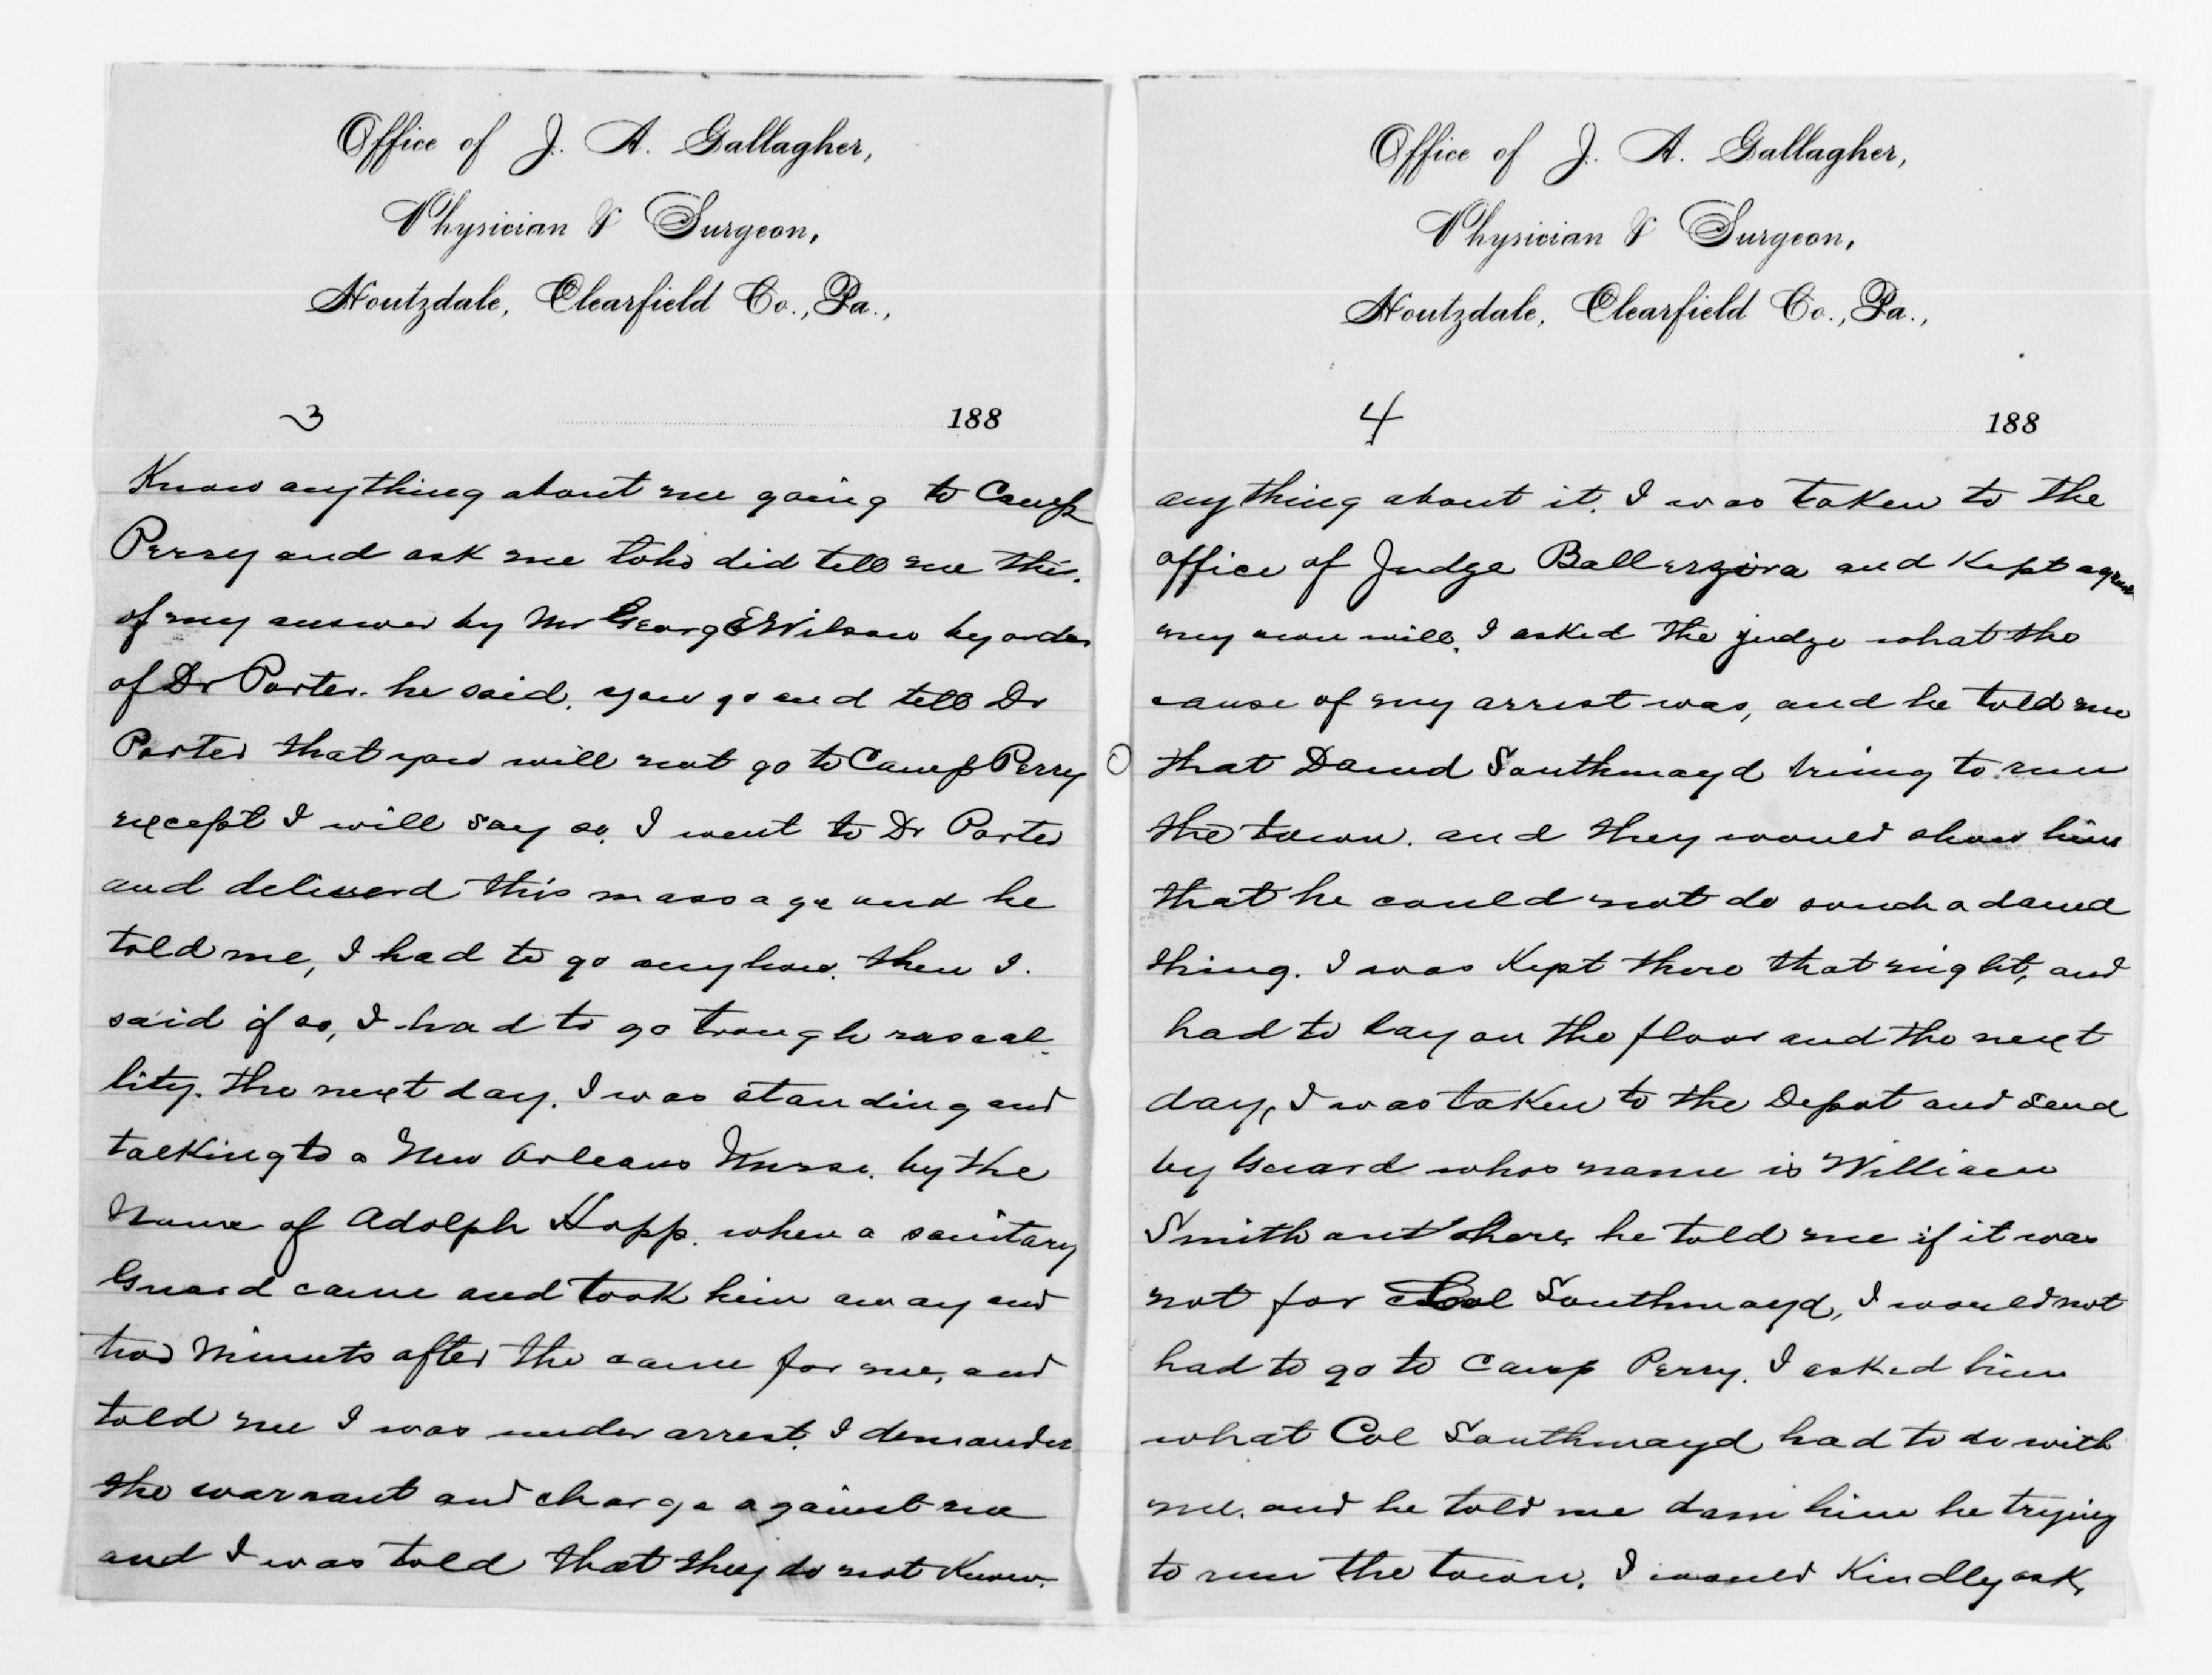 Office of J. A. Gallagher,
Physician & Surgeon,
Houtzdale, Clearfield Co., Pa.,
3 188
Know anything about me going to Camp
Perry and ask me who did tell me this.
of my answer by Mr George E Wilson by order
of Dr Porter. he said. you go and tell Dr
Porter that you will not go to Camp Perry
except I will say so. I went to Dr Porter
and deliverd this massage and he
told me, I had to go anyhow. then I.
said if so, I had to go trough rascal-
lity. the next day. I was standing and
talking to a New Orleans Nurse. by the
Name of Adolph Hopp. when a sanitary
Guard came and took him away and
two Minuets after the came for me, and
told me I was under arrest. I demanded
the warrant and charge against me
and I was told that they do not Know.
Office of J. A. Gallagher,
Physician & Surgeon,
Houtzdale, Clearfield Co., Pa.,
4 188
anything about it. I was taken to the
office of Judge and Kept against
my own will. I asked the judge what the
cause of my arrest was, and he told me
that David Southmayd triing to run
the town. and they would show him
that he could not do such a damed
thing. I was Kept there that night, and
had to lay on the floor and the next
day, I was taken to the Depot and send
by Guard whos name is William
Smith out there, he told me if it was
not for Col Southmayd, I would not
had to go to Camp Perry. I asked him
what Col Southmayd had to do with
me. and he told me dam him he trying
to run the town. I would Kindly ask,